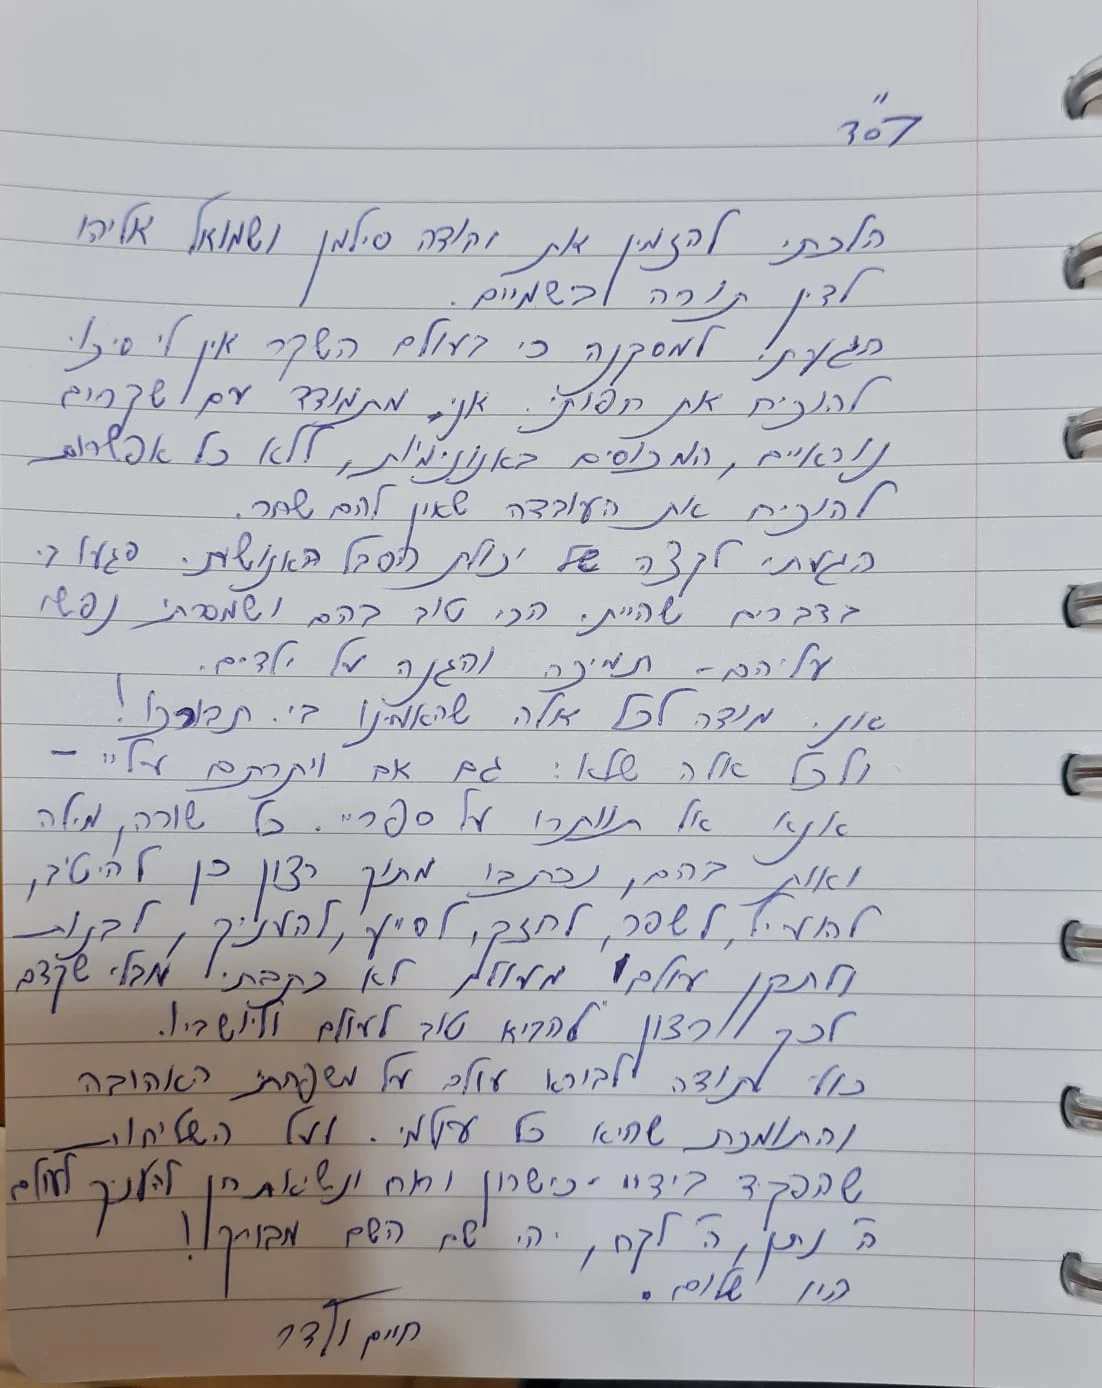 בס"ד
הלכתי להזמין את יהודה סילמן ושמואל אליהו
לדין תורה בשמיים.
הגעתי למסקנה כי בעולם השקר אין לי סיכוי
להוכיח את חפותי. אני מתמודד עם שקרים
נוראיים, המכוסים באנונימיות, ללא כל אפשרות
להוכיח את העובדה שאין להם שחר.
הגעתי לקצה של יכולת הסבל האנושית. פגעו בי
בדברים שהייתי הכי טוב בהם ושמסרתי נפשי
עליהם - תמיכה והגנה על ילדים.
אני מודה לכל אלה שהאמינו בי. תבורכו!
ולכל אלה שלא: גם אם ויתרתם עליי -
אנא אל תוותרו על ספריי. כל שורה, מילה
ואות בהם, נכתבו מתוך רצון כן להיטיב,
להועיל, לשפר, לחזק, לסייע, להעניק, לבנות
ולתקן עולם. מעולם לא כתבתי מבלי שקדם
לכך רצון להביא טוב לעולם וליושביו.
כולי תודה לבורא עולם על משפחתי האהובה
והתומכת שהיא כל עולמי. ועל השליחות
שהפקיד בידיי - כישרון ומח ונשיאת חן להעניק לעולם
ה' נתן, ה' לקח, יהי שם השם מבורך!
היו שלום.
חיים ולדר